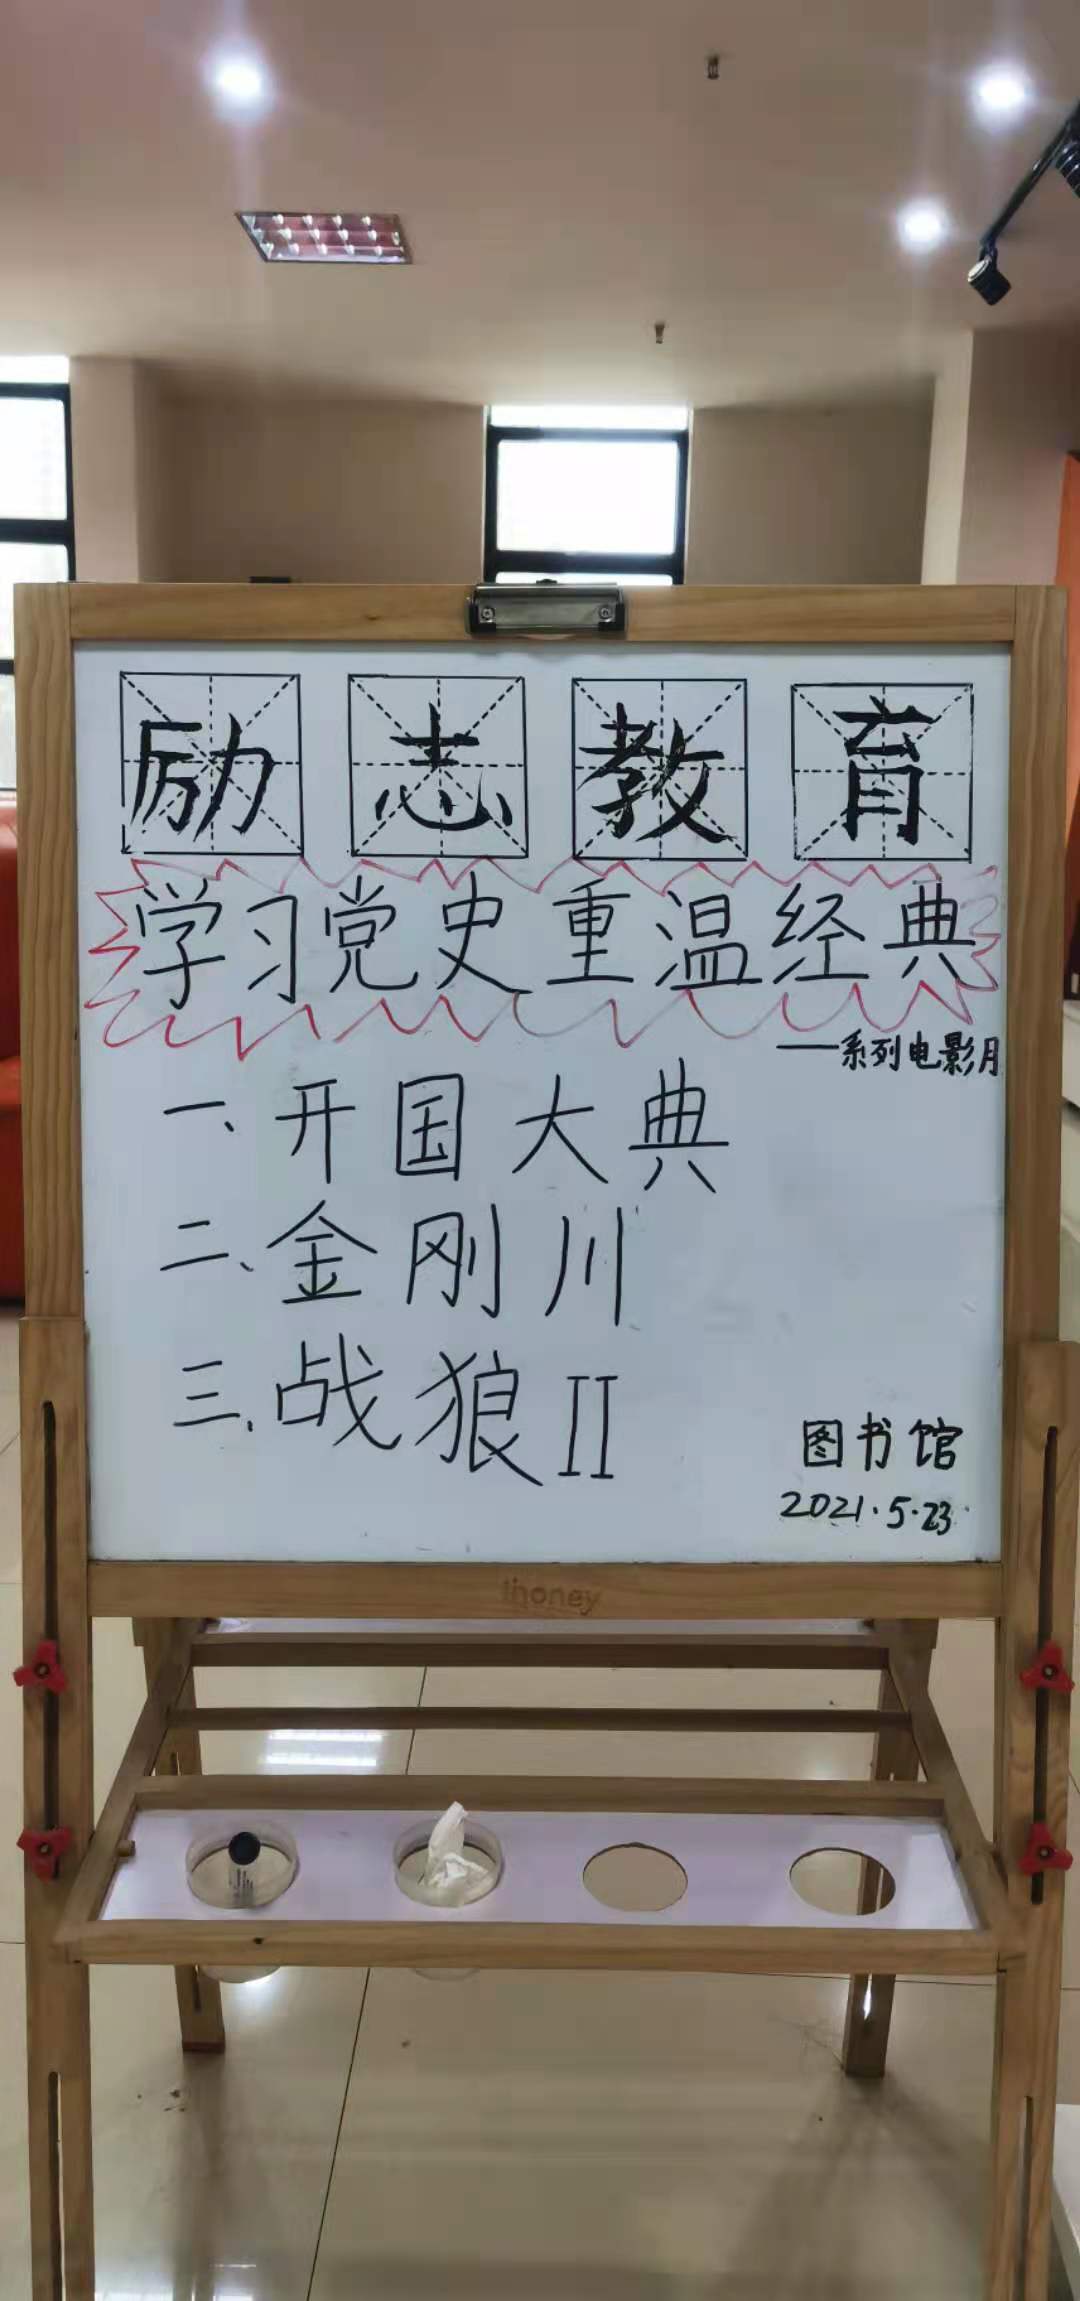 励志教育
学习党史重温经典
——系列电影月
一、开国大典
二、金刚川
三、战狼II
图书馆
2021.5.23
ihoney